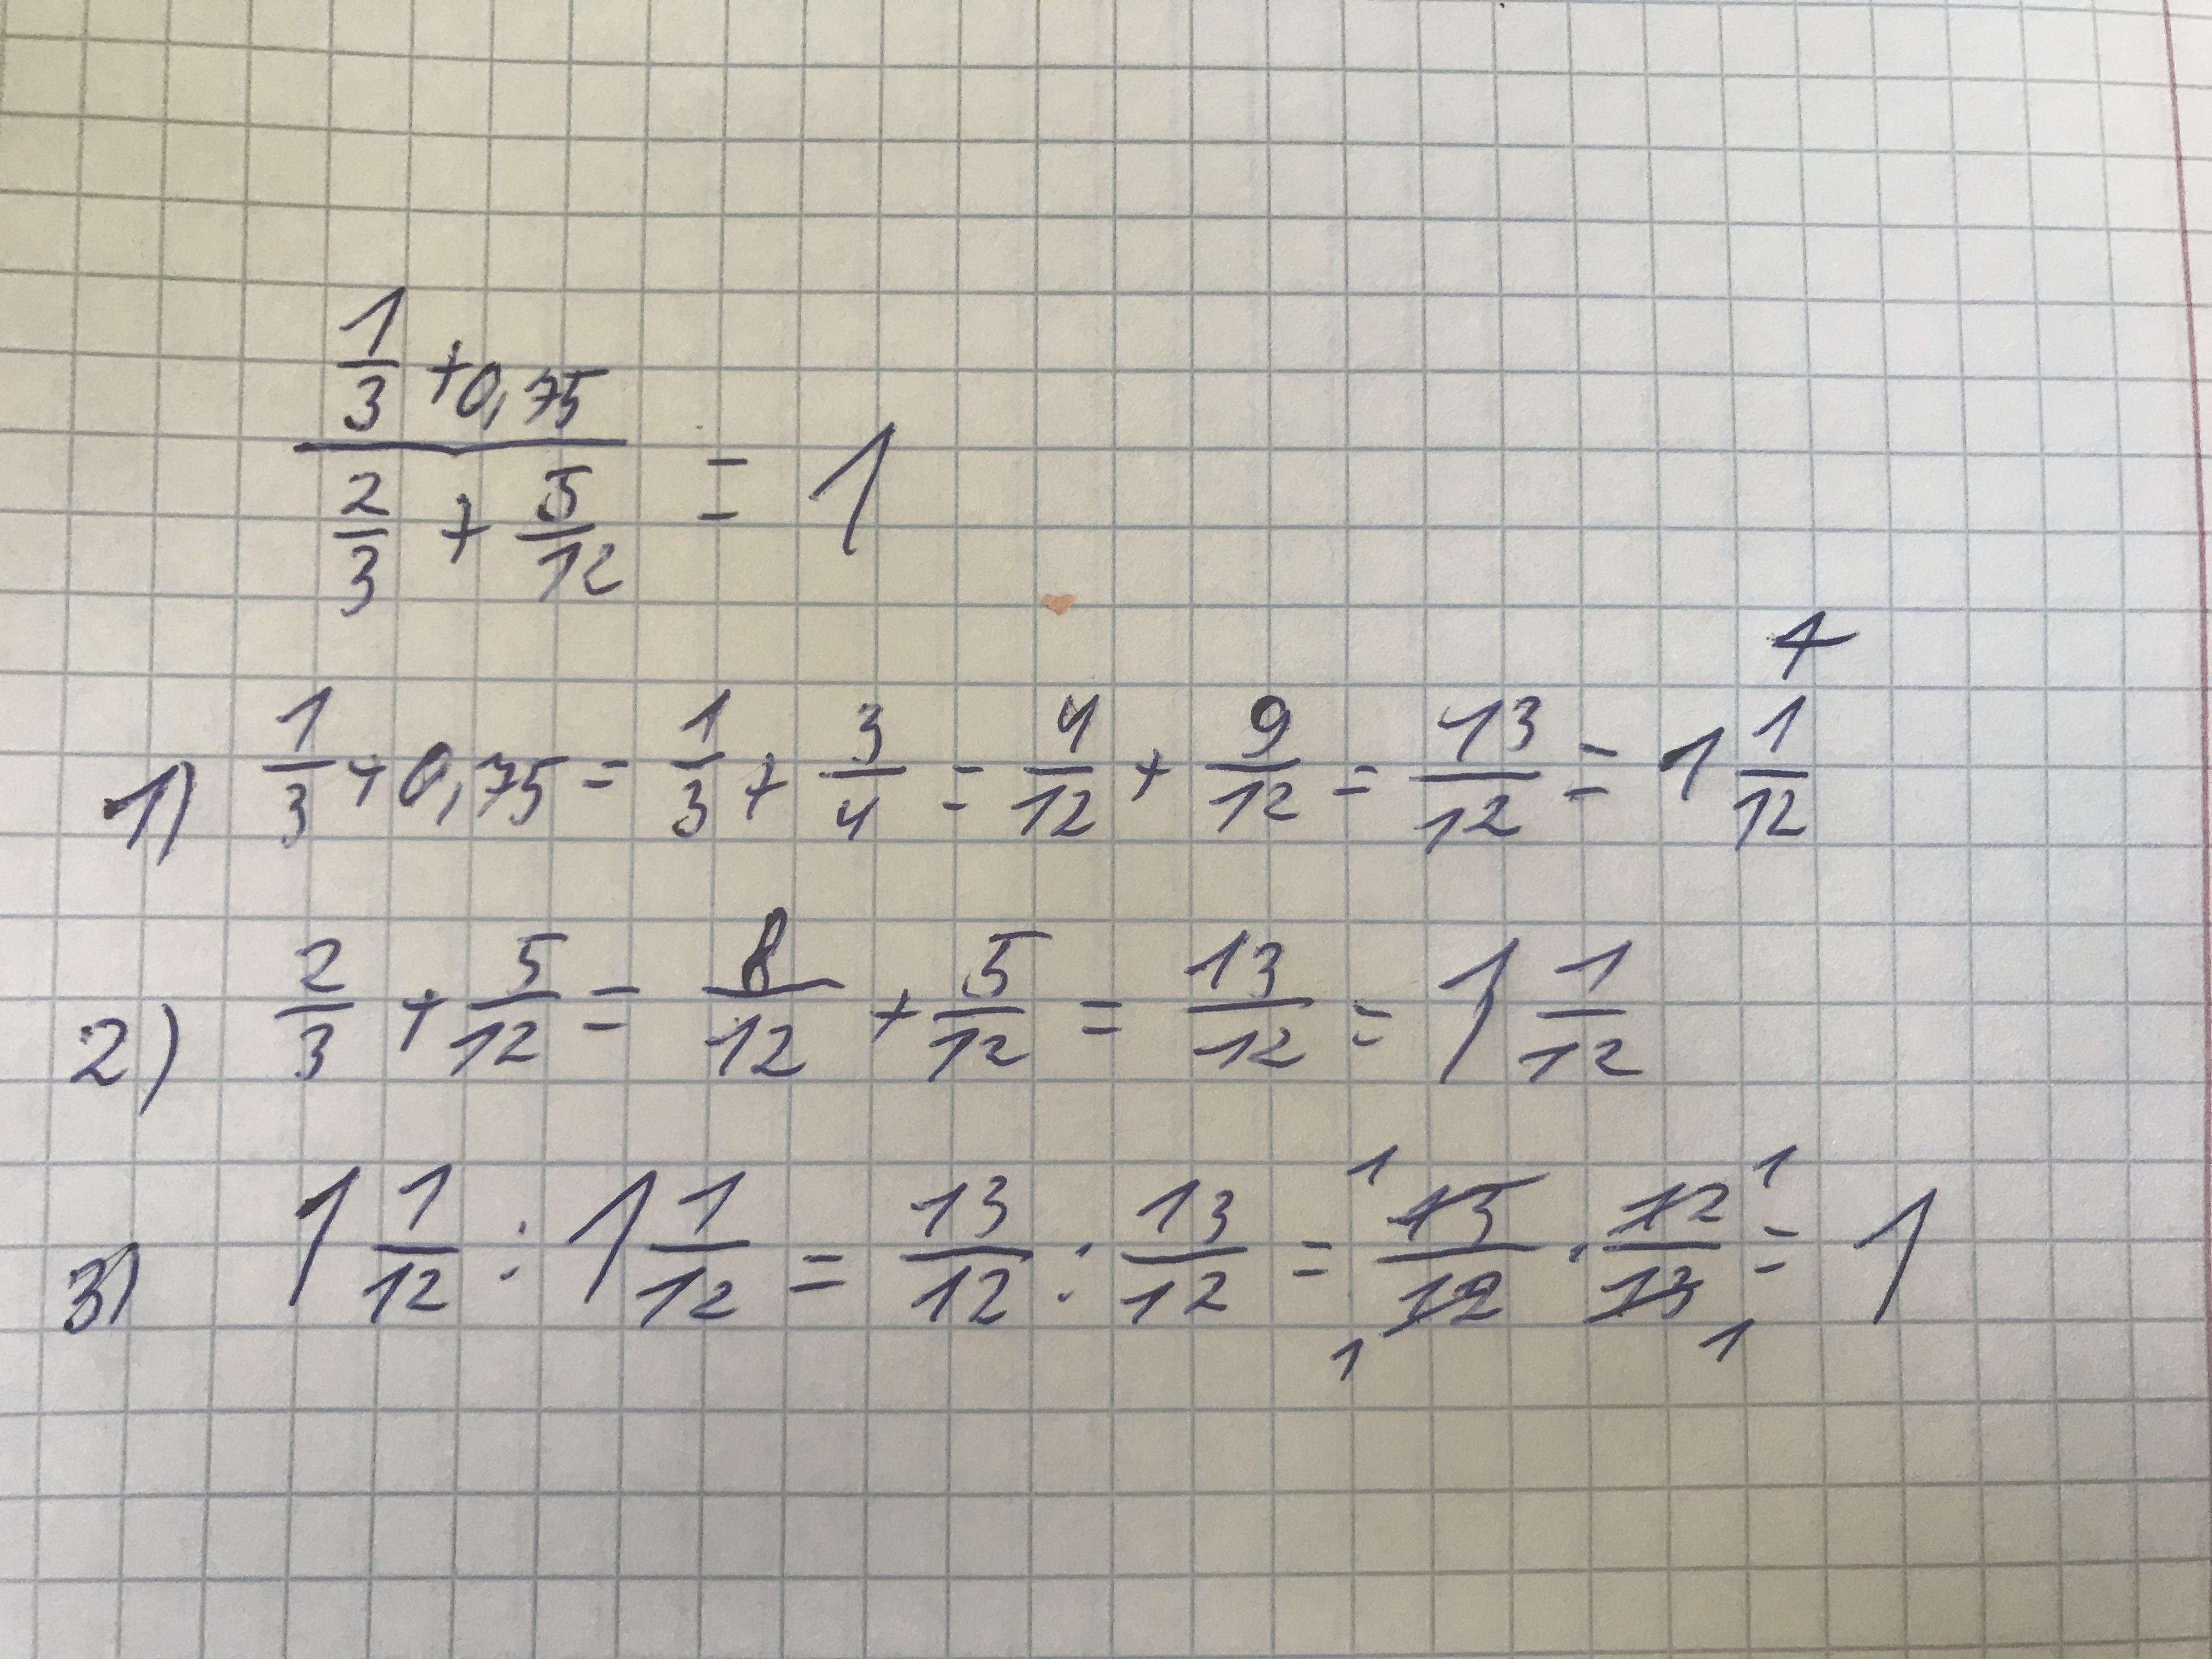 (1/3 + 0,75) / (2/3 + 5/12) = 1
1) 1/3 + 0,75 = 1/3 + 3/4 = 4/12 + 9/12 = 13/12 = 1 1/12
2) 2/3 + 5/12 = 8/12 + 5/12 = 13/12 = 1 1/12
3) 1 1/12 : 1 1/12 = 13/12 : 13/12 = 13/12 · 12/13 = 1